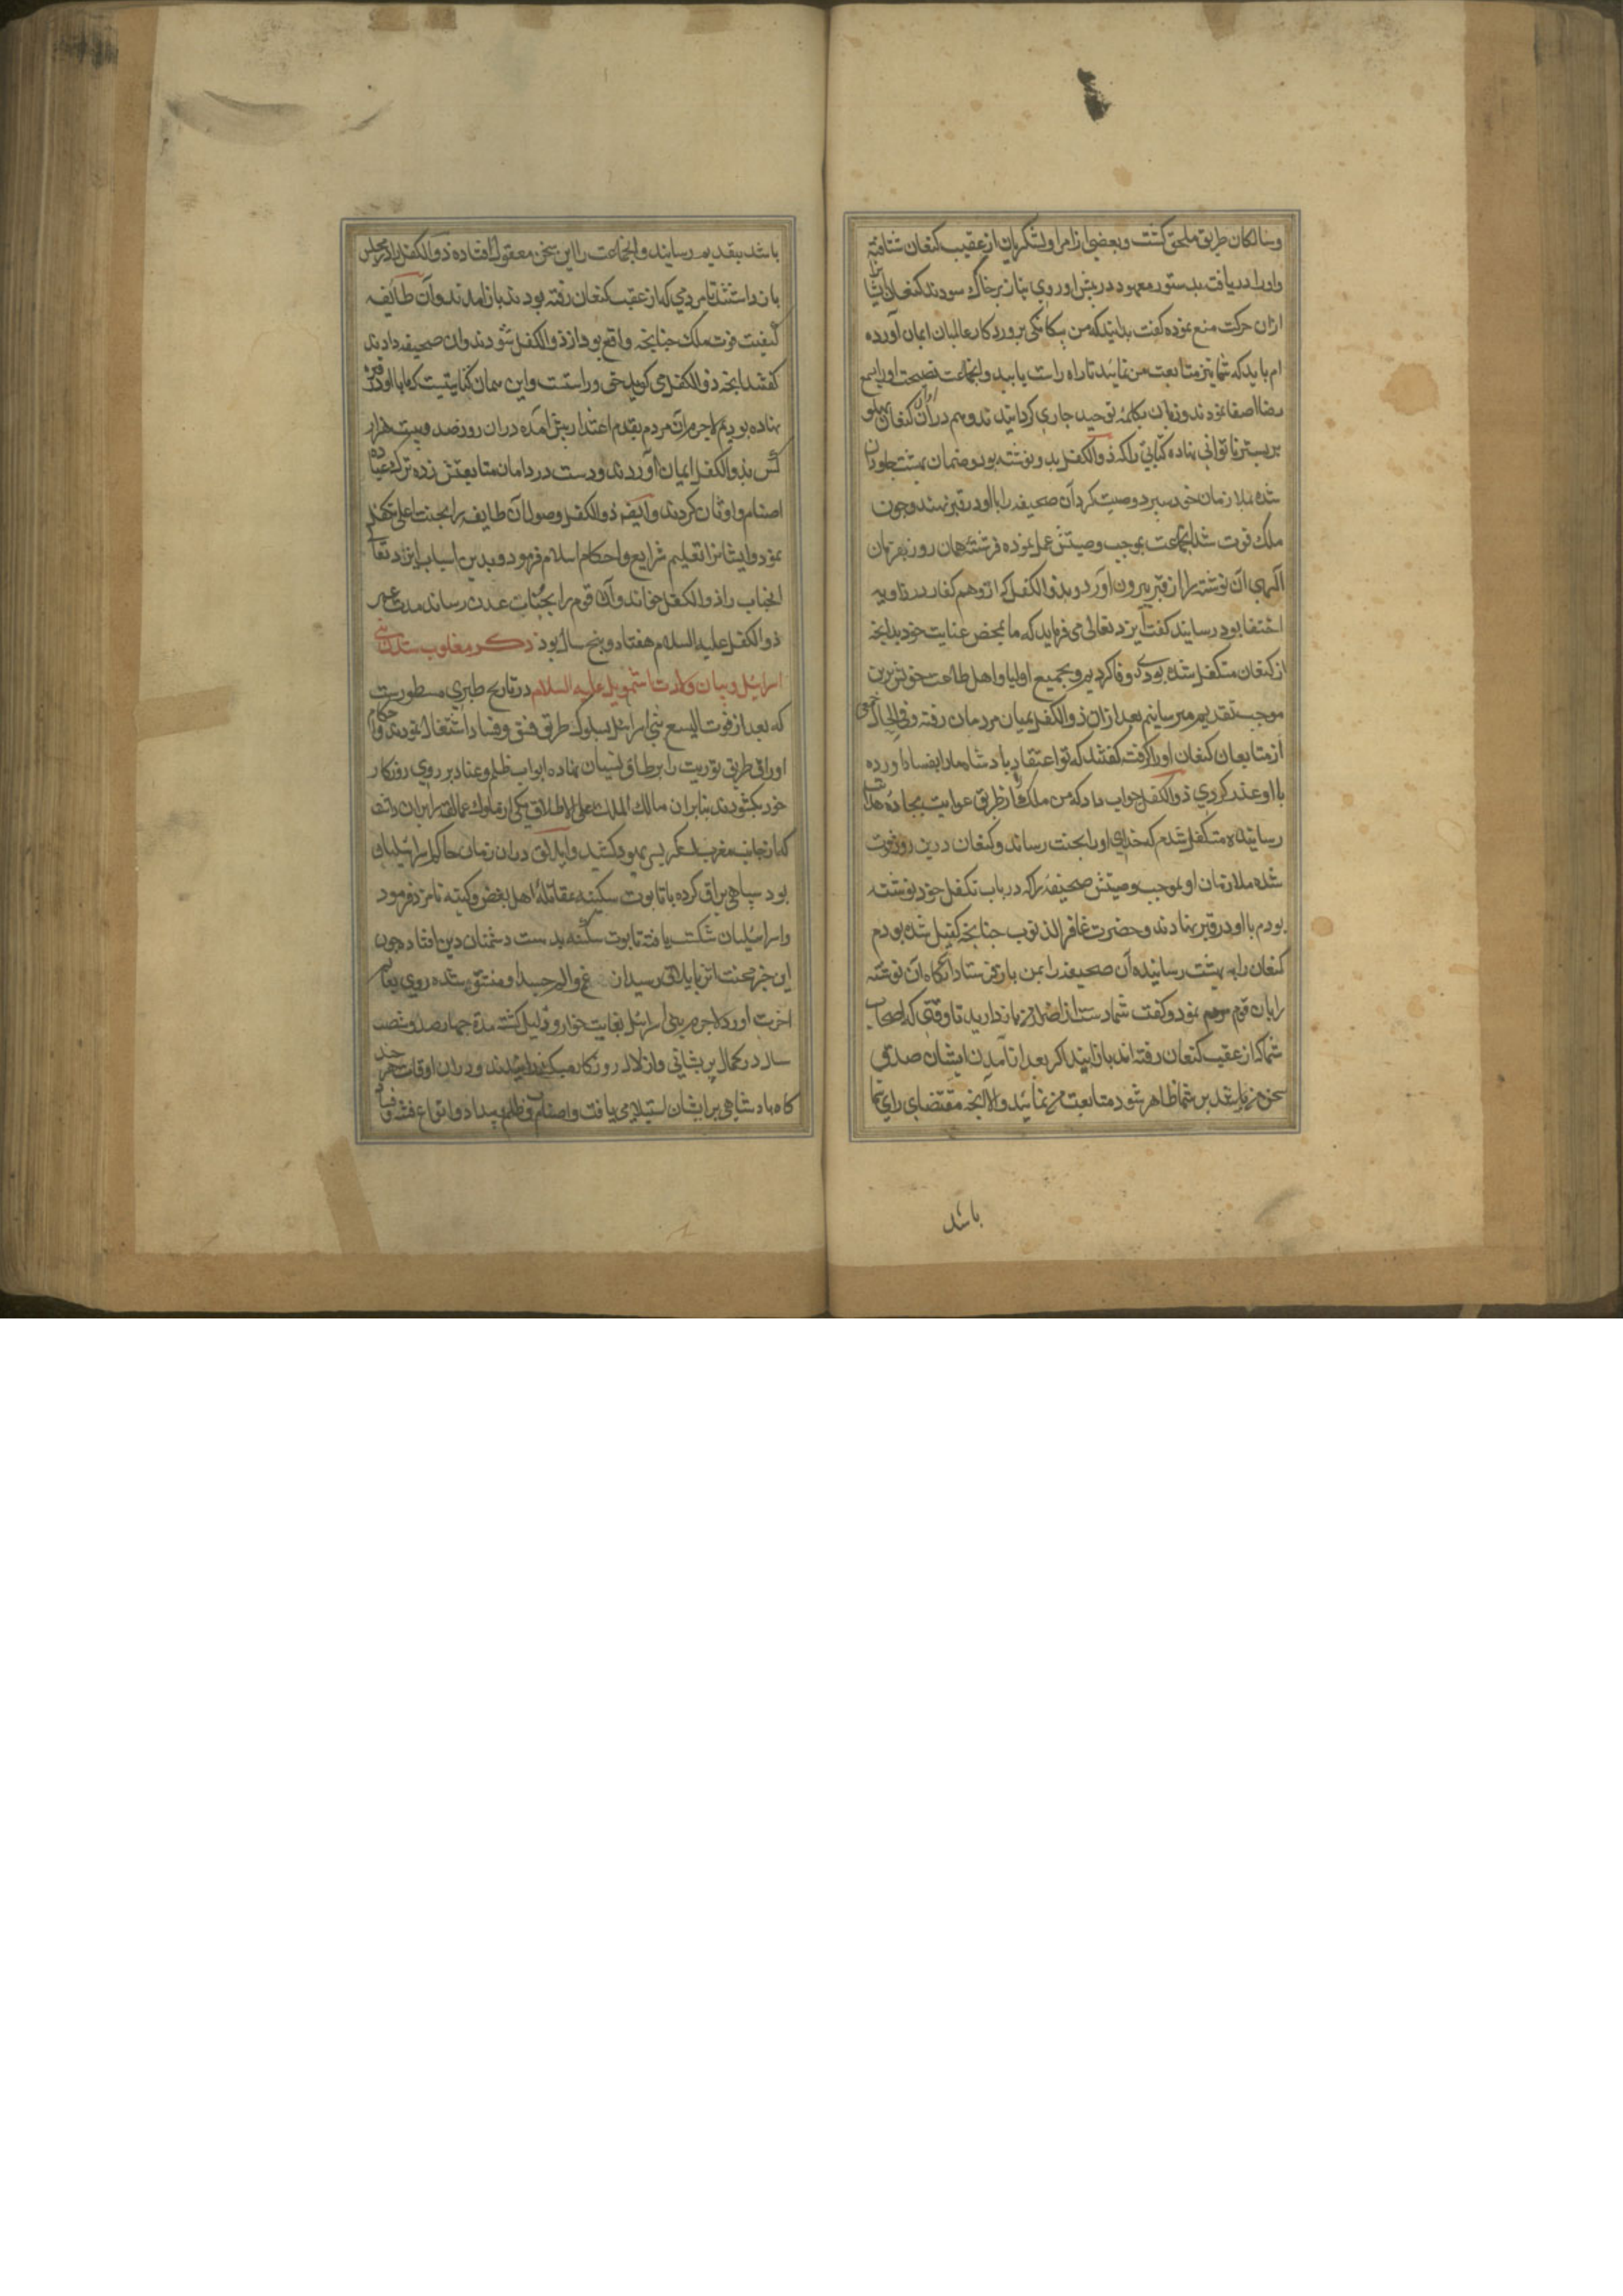 وسالکان طریق ملحق کشت و بعضی از امرا و لشکریان از عقیب کنعان شتافته
و او را دریافت بدستور معهود در پیش او روی نیاز بر خاک سودند کنعان ایشانرا
ازان حرکت منع نموده کفت بدانید که من بیکانکی پروردکار عالمیان ایمان آورده
ام باید که شما نیز متابعت من نمایید تا راه راست یابید و انجماعت نصیحت او را بسمع
رضا اصغا نمودند و زبان بکلمه توحید جاری کردانیدند و هم دران اوان کنعان پهلو
بر بستر ناتوانی نهاده کتابی را که ذوالکفل بدو نوشته بود و ضمان بهشت جاودان
شده بملازمان خود سپرد وصیت کرد آن صحیفه را با او در قبر نهند و چون
ملک فوت شد انجماعت بموجب وصیتش عمل نموده فرشته همان روز بفرمان
الهی آن نوشته را از قبر بیرون آورد و بذوالکفل که از توهم کفار در زاویه
اختفا بود رسانید کفت ایزد تعالی می فرماید که ما بمحض عنایت خود بدانچه
از کنعان متکفل شده بودی وفا کردیم و بجمیع اولیا و اهل طاعت خویش برین
موجب تقدیم میرسانیم بعد ازان ذوالکفل بمیان مردمان رفته و فی الحال جمعی
از متابعان کنعان او را کرفته کفتند که تو اعتقاد پادشاه ما را بفساد آورده
با او عذر کردی ذوالکفل جواب داد که من ملک را از طریق غوایت بجاده هدایت
رسانیده متکفل شدم که خدای او را بجنت رساند و کنعان درین روز فوت
شده ملازمان او بموجب وصیتش صحیفه را که در باب تکفل خود نوشته
بودم با او در قبر نهادند و حضرت غافر الذنوب چنانچه کفیل شده بودم
کنعان را به بهشت رسانیده آن صحیفه را بمن باز فرستاد آنکاه آن نوشته
را بان قوم نمود و کفت شما دست از اضرار من باز دارید تا وقتی که اصحاب
شما که از عقیب کنعان رفته اند باز ایند اکر بعد از آمدن ایشان صدق
سخن من بر شما ظاهر شود متابعت من نمایید و الا آنچه مقتضای رای شما
باشد
باشد بتقدیم رسانید و انجماعت را این سخن معقول افتاده ذوالکفل را در مجلس
باز داشتند تا مردمی که از عقب کنعان رفته بودند باز امدند و آن طایفه
کیفیت فوت ملک چنانچه واقع بود از ذوالکفل شنودند و ان صحیفه دادند
کفتند انچه ذوالکفل می کوید حق و راستست و این همان کتابیست که ما با او در قبر
نهاده بودیم لاجرم آن مردم بقدم اعتذار پیش آمده دران روز صد و بیست هزار
کس بذوالکفل ایمان آوردند و دست در دامان متابعتش زده ترک عبادت
اصنام و اوثان کردند و ذوالکفل وصول آن طایفه را بجنت اعلی متکفل
نمود و ایشانرا تعلیم شرایع و احکام اسلام فرمود و بدین اسباب ایزد تعالی
انجناب را ذوالکفل خواند و آن قوم را بجنات عدن رساند مدت عمر
ذوالکفل علیه السلام هفتاد و پنج سال بود ذکر مغلوب شدن بنی
اسرائیل و بیان ولادت اشمویل علیه السلام در تاریخ طبری مسطورست
که بعد از فوت الیسع بنی اسرائیل بسلوک طریق فسق و فساد اشتغال نمودند و احکام
اوراق طریق توریت را بر طاق نسیان نهاده ابواب ظلم و عناد بر روی روزکار
خود بکشودند بنابران مالک الملک علی الاطلاق یکی از ملوک عمالقه را بران داشت
که از جانب مغرب لشکر بسر یهود کشید و ایلاق دران زمان حاکم اسرائیلیان
بود سپاهی براق کرده با تابوت سکینه بمقاتله اهل بغض و کینه نامزد فرمود
و اسرائیلیان شکست یافته تابوت سکینه بدست دشمنان دین افتاد چون
این خبر محنت اثر بایلاق رسید ان غم و الم روی بعالم
اخرت اورد لاجرم بنی اسرائیل بغایت خوار و ذلیل کشته مدة چهار صد و شصت
سال در کمال پریشانی و ازلال روزکار میکذرانیدند و دران اوقات هر چند
کاه پادشاهی برایشان استیلا می یافت و اصناف ظلم و بیداد و انواع فتنه و فساد